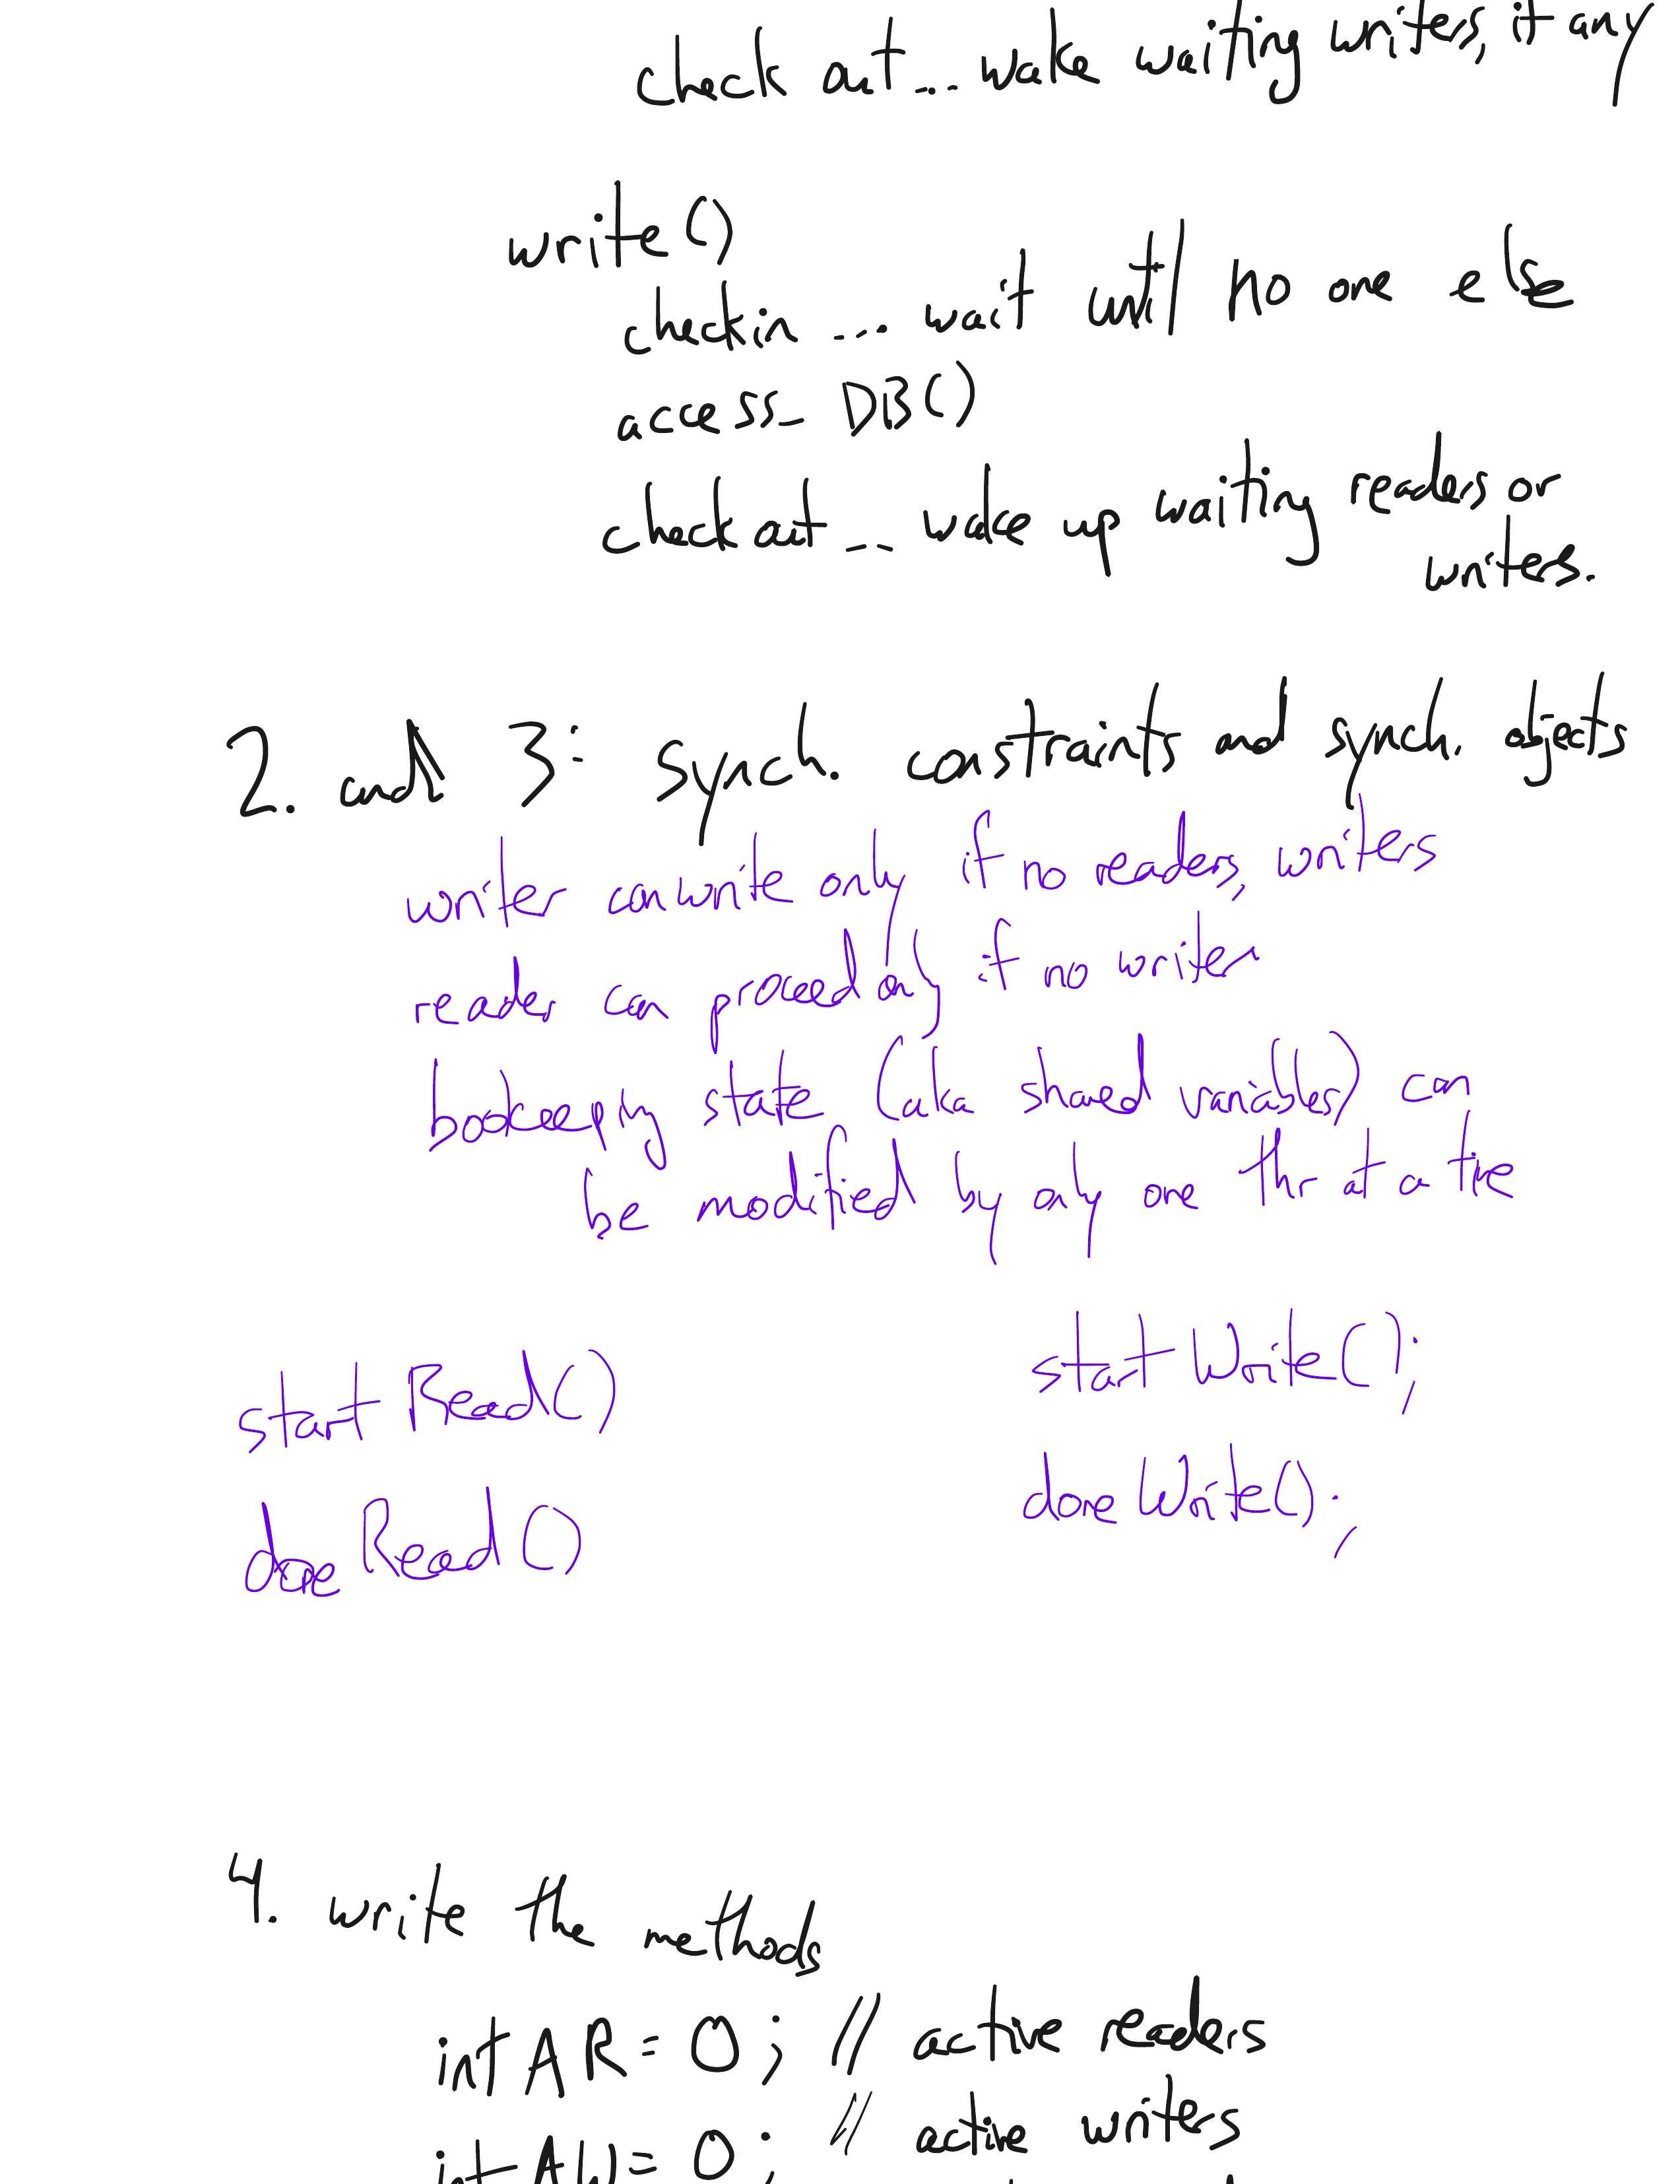 check out... wake waiting writers, if any
write()
checkin ... wait until no one else
access_ DB()
check out -- wake up waiting readers or
writers.
2. and 3: synch. constraints and synch. objects
writer can write only if no readers, writers
reader can proceed only if no writer
bookeeping state (aka shared variables) can
be modified by only one thr at a time
startRead()
doneRead()
startWrite();
doneWrite();
4. write the methods
int AR = 0; // active readers
int AW = 0; // active writers